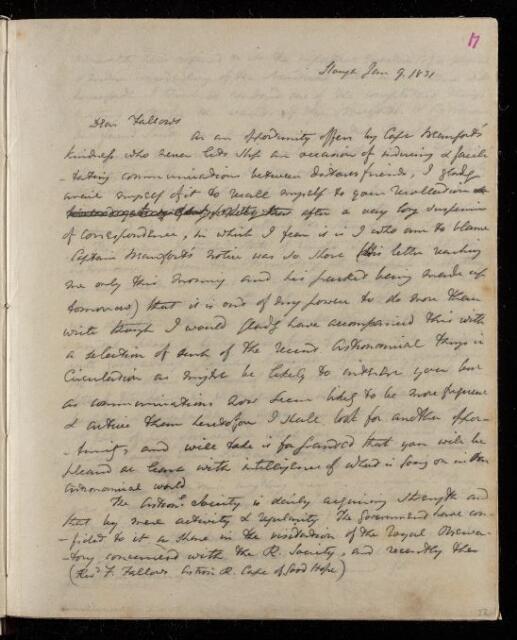 17
Slough Jan 9. 1831
Dear Fallows
As an opportunity offers by Capt Beaufort's
kindness who never lets slip an occasion of and facili
-tating communications between distant friends, I gladly
avail myself of it to recall myself to your recollection
after a very long suspension
of correspondence, in which I fear it is I who am to blame
Captain Beaufort's notice was so short (His letter reaching
me only this morning and his packet being made up
tomorrow) that it is out of my power to do more than
write though I would gladly have accompanied this with
a selection of such of the recent astronomical things in
Circulation as might be likely to interest you but
as communications now seem likely to be more frequent
& active than heretofore I shall look for another oppor-
-tunity, and will take it for granted that you will be
pleased to learn with intelligence of what is going on in the
astronomical world
The Astronl Society is daily acquiring strength and
that by mere activity & regularity The Government have con-
-fided to it a share in the visitation of the Royal Observa-
-tory concurrent with the R. Society, and recently the
(Revd F. Fallows Astron R. Cape of Good Hope)